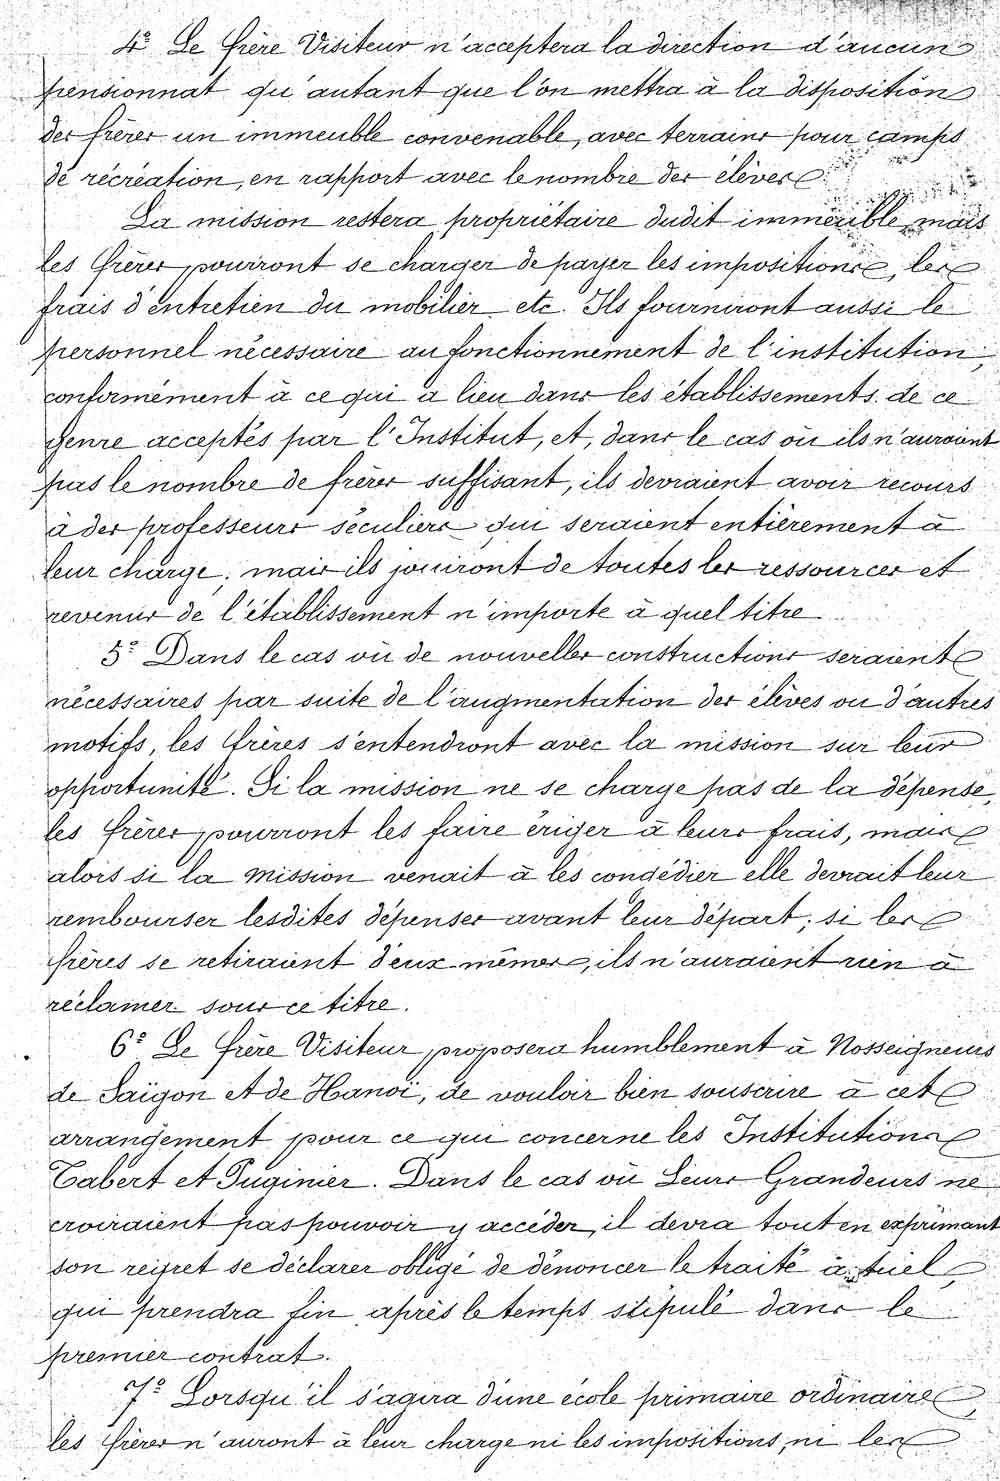 4º Le frère Visiteur n'acceptera la direction d'aucun
pensionnat qu'autant que l'on mettra à la disposition
des frères un immeuble convenable, avec terrains pour camps
de récréation, en rapport avec le nombre des élèves.
La mission restera propriétaire dudit immeuble, mais
les frères pourront se charger de payer les impositions, les
frais d'entretien du mobilier etc. Ils fourniront aussi le
personnel nécessaire au fonctionnement de l'institution,
conformément à ce qui a lieu dans les établissements de ce
genre acceptés par l'Institut, et, dans le cas où ils n'auraient
pas le nombre de frères suffisant, ils devraient avoir recours
à des professeurs séculiers qui seraient entièrement à
leur charge; mais ils jouiront de toutes les ressources et
revenus de l'établissement n'importe à quel titre
5º Dans le cas où de nouvelles constructions seraient
nécessaires par suite de l'augmentation des élèves ou d'autres
motifs, les frères s'entendront avec la mission sur leur
opportunité. Si la mission ne se charge pas de la dépense,
les frères pourront les faire ériger à leurs frais, mais
alors si la mission venait à les congédier elle devrait leur
rembourser lesdites dépenses avant leur départ; si les
frères se retiraient d'eux-mêmes, ils n'auraient rien à
réclamer sous ce titre.
6º Le frère Visiteur proposera humblement à Nosseigneurs
de Saïgon et de Hanoï, de vouloir bien souscrire à cet
arrangement pour ce qui concerne les Institutions
Tabert et Puginier. Dans le cas où Leurs Grandeurs ne
croiraient pas pouvoir y accéder, il devra tout en exprimant
son regret se déclarer obligé de dénoncer le traité actuel,
qui prendra fin après le temps stipulé dans le
premier contrat.
7º Lorsqu'il s'agira d'une école primaire ordinaire,
les frères n'auront à leur charge ni les impositions, ni les